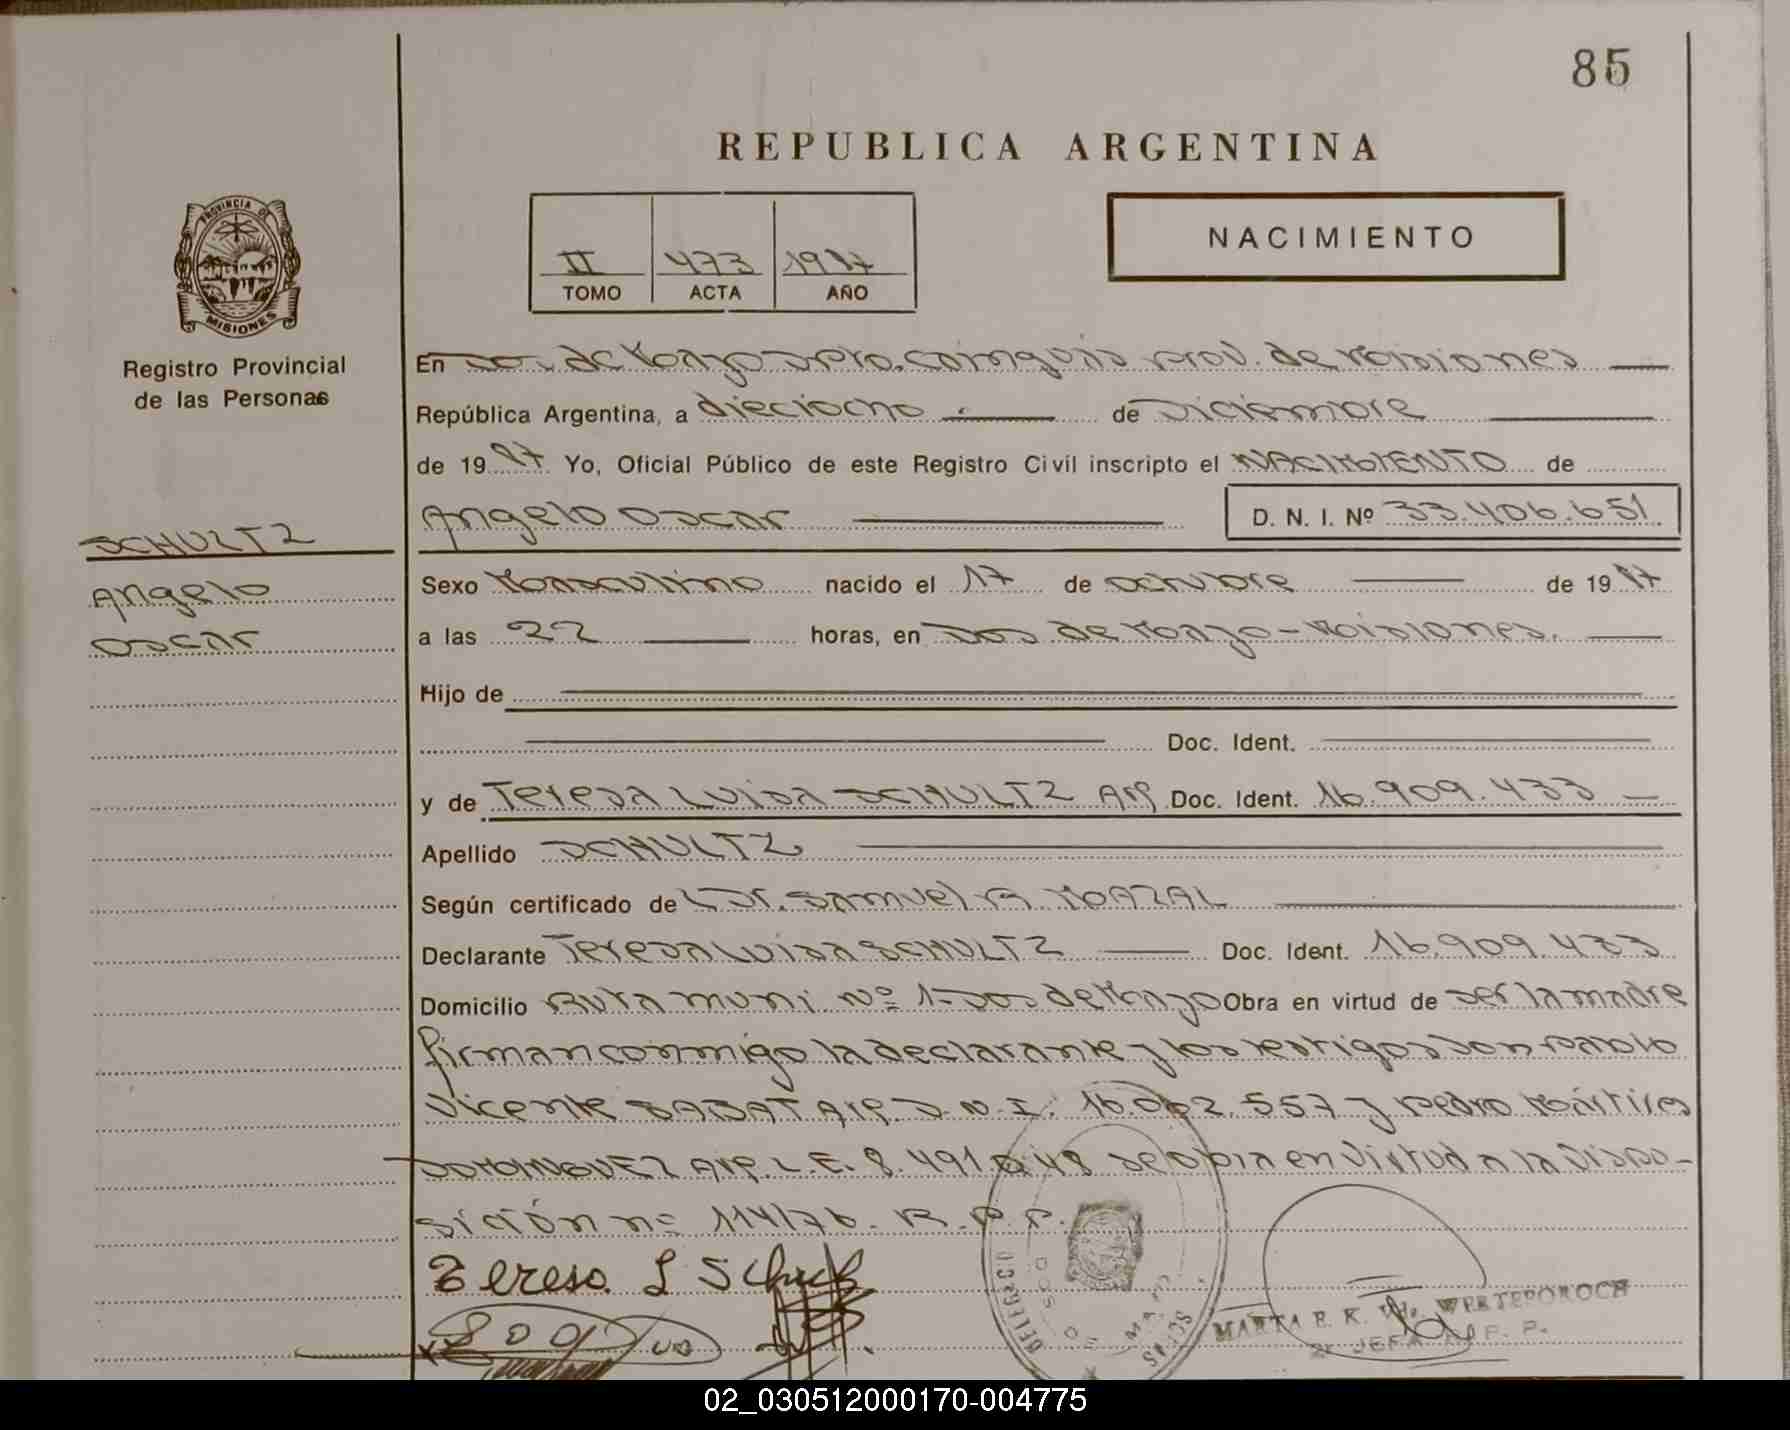 85
REPUBLICA ARGENTINA
PROVINCIA DE
MISIONES
Registro Provincial
de las Personas
II 473 1987
TOMO ACTA AÑO
NACIMIENTO
En Dos de Mayo Dpto. Cainguás Prov. de Misiones
República Argentina, a dieciocho de Diciembre
de 1987 Yo, Oficial Público de este Registro Civil inscripto el NACIMIENTO de
Angelo Oscar D. N. I. Nº 33.406.651
SCHULTZ
Angelo
Oscar
Sexo Masculino nacido el 17 de octubre de 1987
a las 22 horas, en Dos de Mayo - Misiones.
Hijo de
Doc. Ident.
y de Teresa Luisa SCHULTZ Arg. Doc. Ident. 16.909.433
Apellido SCHULTZ
Según certificado de Dr. Samuel R. MAZAL
Declarante Teresa Luisa SCHULTZ Doc. Ident. 16.909.433
Domicilio Ruta Muni. Nº 1-Dos de Mayo Obra en virtud de ser la madre
firman conmigo la declarante y los testigos Don Pablo
Vicente SABAT Arg. D.N.I. 16.062.557 y Pedro Mártires
DOMINGUEZ Arg. L.E. 8.491.048 se obia en virtud a la Dispo-
sición nº 114/76. R.P.P.
Teresa L Schultz
MARTA E. K. WERTEPOROCH
JEFA R. P. P.
02_030512000170-004775